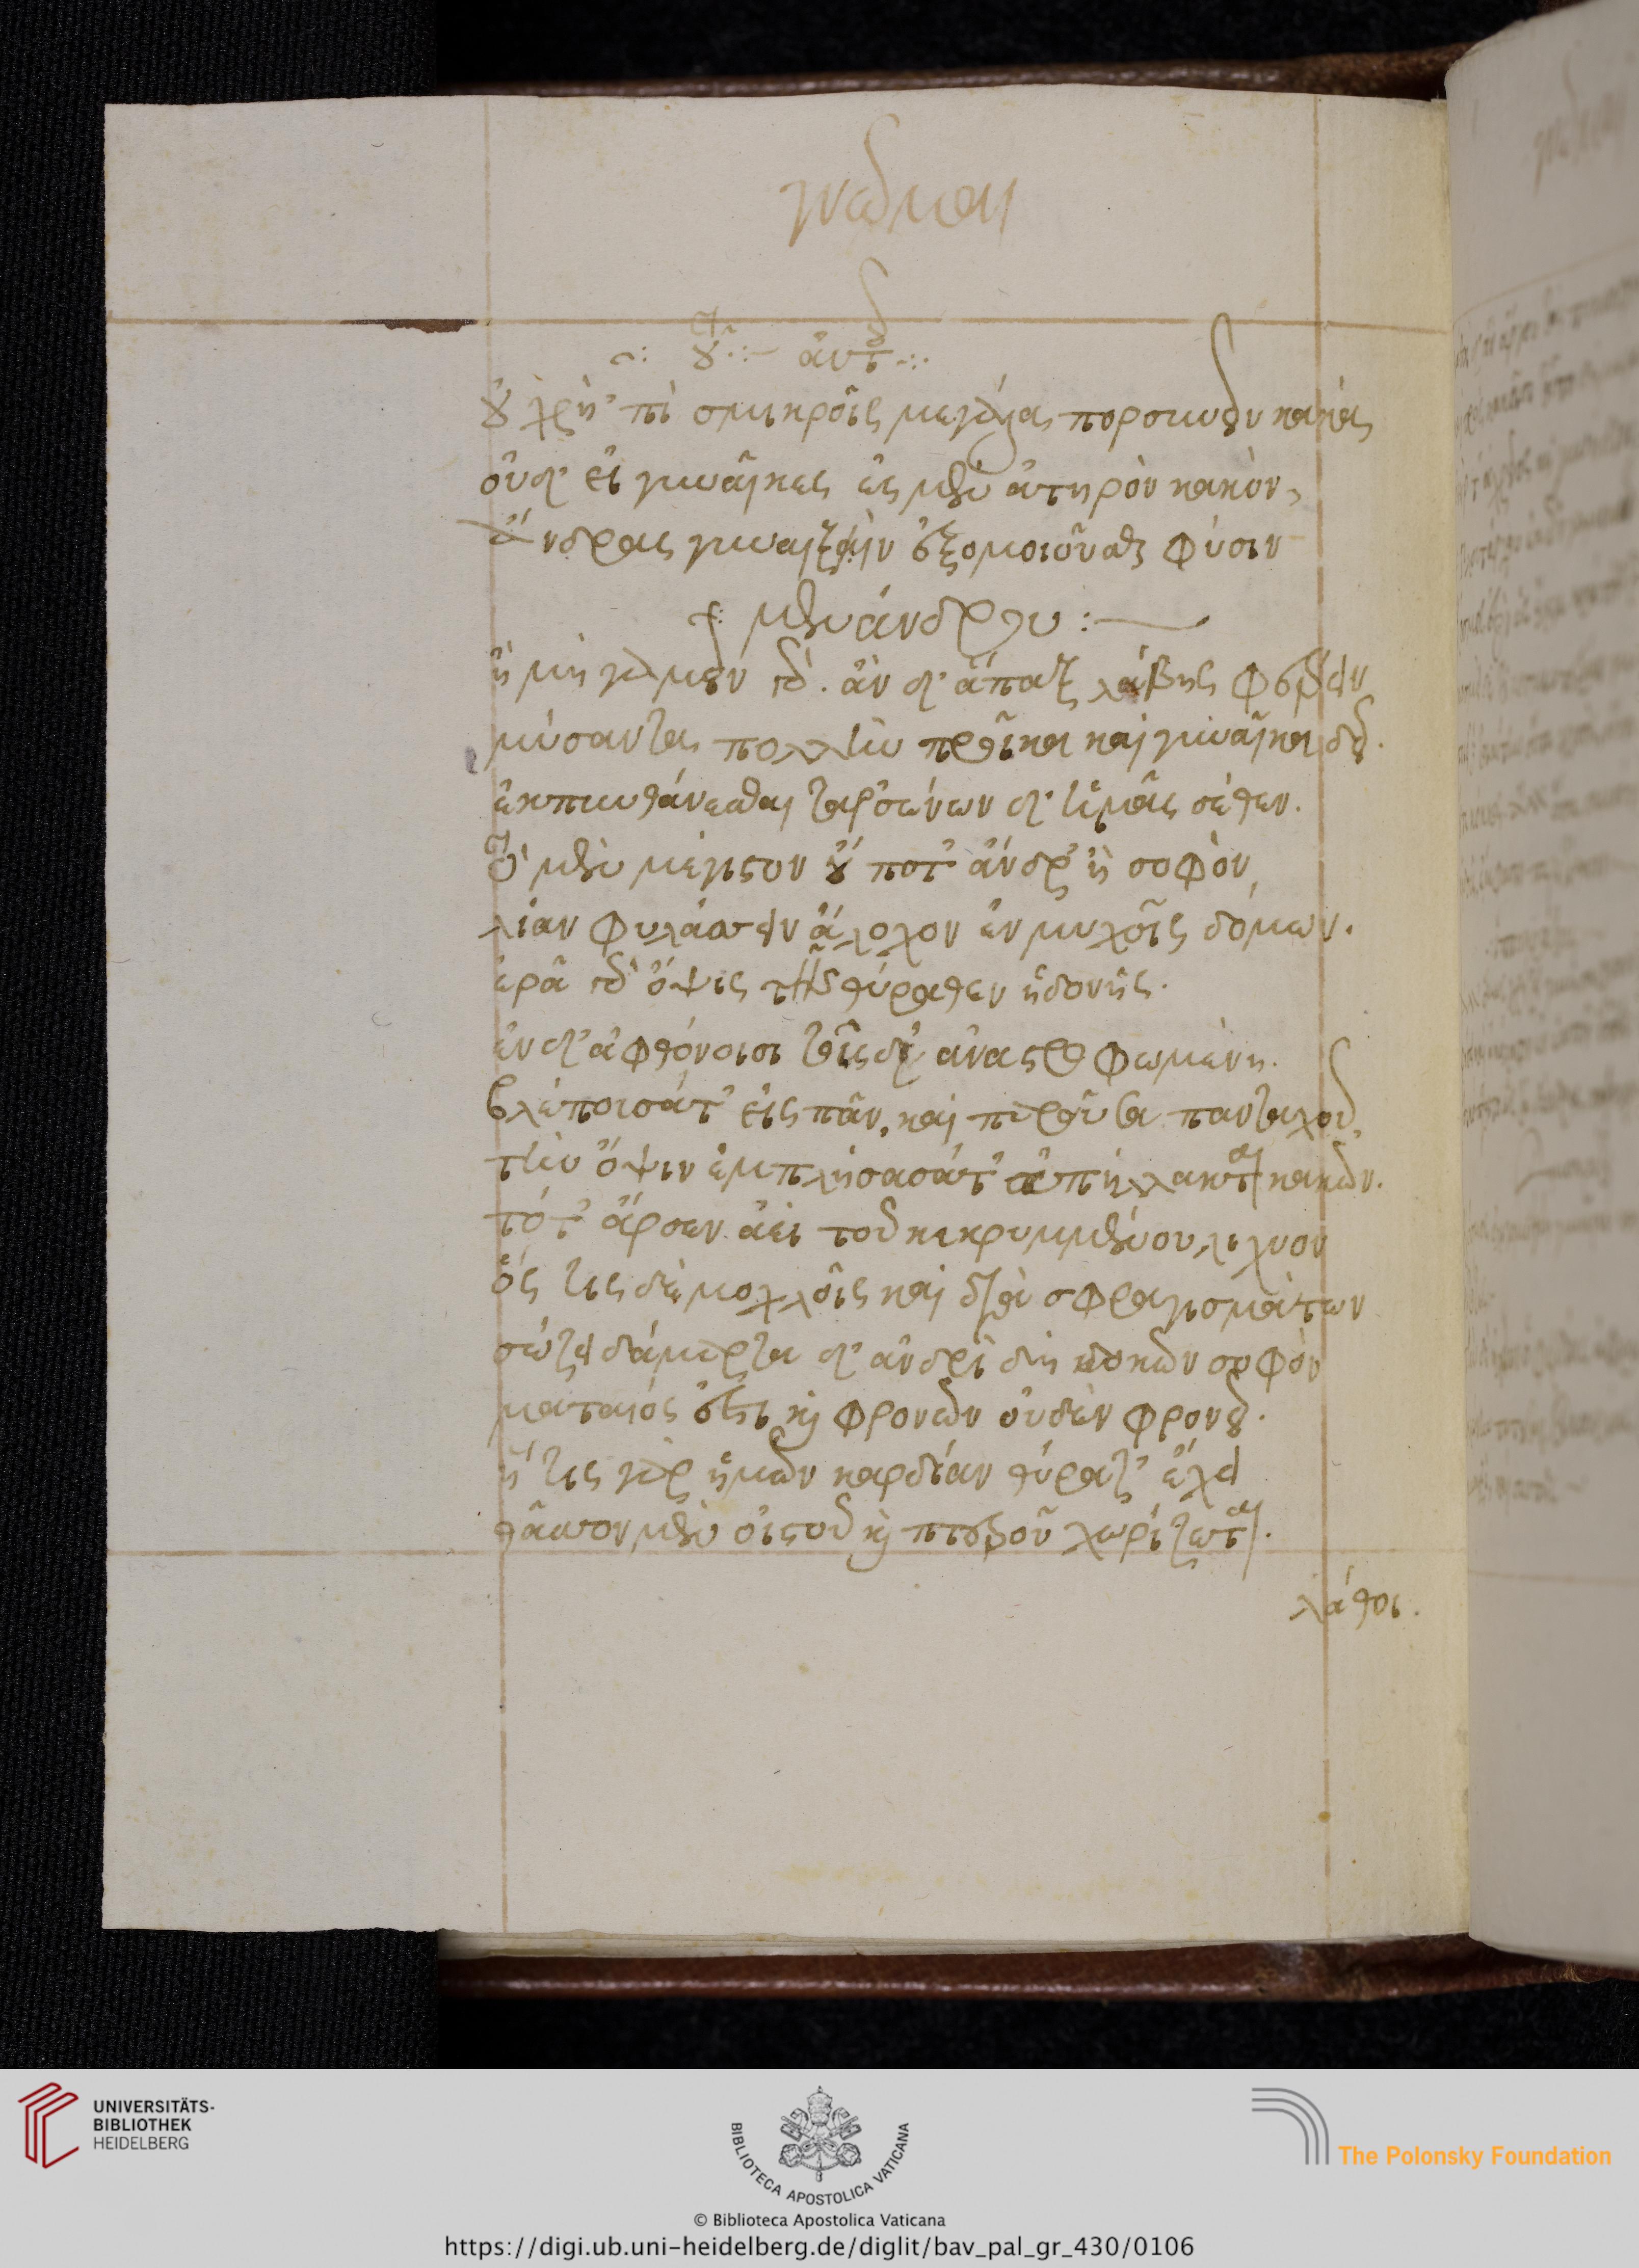 γνῶμαι
τοῦ αὐτοῦ
οὐ χρὴ 'πὶ σμικροῖς μεγάλα πορσύνειν κακά
οὐδ' εἰ γυναῖκες ἐσμὲν ἀτηρὸν κακὸν,
ἄνδρας γυναιξὶν ἐξομοιοῦσθαι φύσιν
μενάνδρου :
ἢ μὴ γαμεῖν δεῖ. ἂν δ' ἅπαξ λάβῃς φέρειν
μύσαντα πολλὴν προῖκα καὶ γυναῖκα δεῖ.
ἐκπυνθάνεσθαι
τὸ μὲν μέγιστον οὔ ποτ' ἄνδρ' ἢ σοφὸν,
λίαν φυλάσσειν ἄλοχον ἐν μυχοῖς δόμων.
ἐρᾷ δ' ὄψις τῆς θύραθεν ἡδονῆς.
ἐν δ' ἀφθόνοισι τοῖσδ' ἀναστροφωμένη.
βλέπουσά τ' εἰς πᾶν, καὶ παροῦσα πανταχοῦ,
τὴν ὄψιν ἐμπλήσασά τ' ἀπήλλακται κακῶν.
τό τ' ἄρσεν ἀεὶ τοῦ κεκρυμμένου λίχνον
ὅς τις δὲ μοχλοῖς καὶ διὰ σφραγισμάτων
σώζει δάμαρτα δ' ἀνδρὶ δὴ δοκῶν σοφὸν
ματαιός ἐστι καὶ φρονῶν οὐδὲν φρονεῖ.
ἥ τις γὰρ ἡμῶν καρδίαν θύραζ' ἔχει
θᾶσσον μὲν οἰστοῦ καὶ πτεροῦ χωρίζεται.
λάθοι.
UNIVERSITÄTS-
BIBLIOTHEK
HEIDELBERG
BIBLIOTECA APOSTOLICA VATICANA
The Polonsky Foundation
© Biblioteca Apostolica Vaticana
https://digi.ub.uni-heidelberg.de/diglit/bav_pal_gr_430/0106